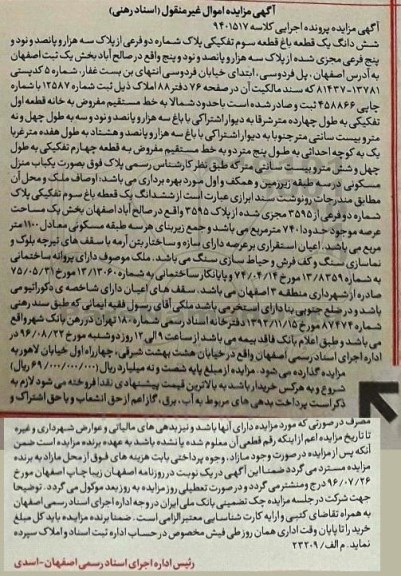 آگهی مزایده اموال غیرمنقول (اسناد رهنی)
آگهی مزایده پرونده اجرایی کلاسه ۹۴۰۱۵۱۷
شش دانگ یک قطعه باغ قطعه سوم تفکیکی پلاک شماره دو فرعی از پلاک سه هزار و پانصد و نود و
پنج فرعی مجزی شده از پلاک سه هزار و پانصد و نود و پنج واقع در صالح آباد بخش یک ثبت اصفهان
به آدرس اصفهان، پل فردوسی، ابتدای خیابان فردوسی انتهای بن بست غفار، شماره ۵ کدپستی
۸۱۴۳۷-۱۳۷۸۱ که سند مالکیت آن در صفحه ۷۶ دفتر ۸۸ املاک ذیل ثبت شماره ۱۲۵۸۷ با شماره
چاپی ۴۵۸۸۶۶ ثبت و صادر شده است با حدود شمالا به خط مستقیم مفروض به خانه قطعه اول
تفکیکی به طول چهارده متر شرقا به دیوار اشتراکی با باغ سه هزار و پانصد و نود و سه به طول چهل و نه
متر و بیست سانتی متر جنوبا به دیوار اشتراکی با باغ سه هزار و پانصد و هشتاد به طول هفده متر غربا
یک به کوچه احداثی به طول پنج متر دو به خط مستقیم مفروض به قطعه چهارم تفکیکی به طول
چهل و شش متر و بیست سانتی متر که طبق نظر کارشناس رسمی پلاک فوق بصورت یکباب منزل
مسکونی در سه طبقه زیرزمین و همکف و اول مورد بهره برداری می باشد؛ اوصاف ملک و محل آن
مطابق مندرجات رونوشت سند ابرازی عبارت است از ششدانگ یک قطعه باغ سوم تفکیکی پلاک
شماره دو فرعی از ۳۵۹۵ مجزی شده از پلاک ۳۵۹۵ واقع در صالح آباد اصفهان بخش یک مساحت
عرصه موجود حدودا ۷۴۰ متر مربع می باشد و جمع زیربنای هر سه طبقه مسکونی معادل ۱۱۰۰ متر
مربع می باشد. اعیان استقراری بر عرصه دارای سازه و ساختار بتن آرمه با سقف های تیرچه بلوک و
نماسازی سنگ و کف فرش و حیاط سازی سنگ می باشد. ملک موصوف دارای پروانه ساختمانی
به شماره ۱۳/۸۳۵۹ مورخ ۷۴/۰۴/۱۴ و پایانکار ساختمانی به شماره ۱۳/۱۳۰۶۰ مورخ ۷۵/۰۵/۳۱
صادره از شهرداری منطقه ۳ اصفهان می باشد. سقف های اعیان دارای شاخصه ی دکوراتیو می
باشد و در ضلع جنوبی بنا دارای استخر می باشد ملکی آقای رسول فقیه ایمانی که طبق سند رهنی
شماره ۸۷۴۷۴ مورخ ۱۳۹۲/۱۱/۱۵ دفترخانه اسناد رسمی شماره ۱۸۰ تهران در رهن بانک شهر واقع
می باشد و طبق اعلام بانک فاقد بیمه می باشد از ساعت ۹ الی ۱۲ روز دوشنبه مورخ ۹۶/۰۸/۲۲ در
اداره اجرای اسناد رسمی اصفهان واقع در خیابان هشت بهشت شرقی، چهارراه اول خیابان لاهور به
مزایده گذارده می شود. مزایده از مبلغ پایه شصت و نه میلیارد ریال (۶۹/۰۰۰/۰۰۰/۰۰۰ ریال)
شروع و به هر کس خریدار باشد به بالاترین قیمت پیشنهادی نقدا فروخته می شود لازم به
ذکر است پرداخت بدهی های مربوط به آب، برق، گاز اعم از حق انشعاب و یا حق اشتراک و
مصرف در صورتی که مورد مزایده دارای آنها باشد و نیز بدهی های مالیاتی و عوارض شهرداری و غیره
تا تاریخ مزایده اعم از اینکه رقم قطعی آن معلوم شده یا نشده باشد به عهده برنده مزایده است ضمن
آنکه پس از مزایده در صورت وجود مازاد، وجوه پرداختی بابت هزینه های فوق از محل مازاد به برنده
مزایده مسترد می گردد ضمنا این آگهی در یک نوبت در روزنامه اصفهان زیبا چاپ اصفهان مورخ
۹۶/۰۷/۲۶ درج و منتشر می گردد و در صورت تعطیلی روز مزایده به روز بعد موکول می گردد. توضیحا
جهت شرکت در جلسه مزایده چک تضمینی بانک ملی ایران در وجه اداره اجرای اسناد رسمی اصفهان
به همراه تقاضای کتبی و ارایه کارت شناسایی معتبر الزامی است. ضمنا برنده مزایده باید کل مبلغ
خرید را تا پایان وقت اداری همان روز طی فیش مخصوص در حساب اداره ثبت اسناد و املاک سپرده
نماید. م الف/ ۲۳۲۰۹
رئیس اداره اجرای اسناد رسمی اصفهان - اسدی